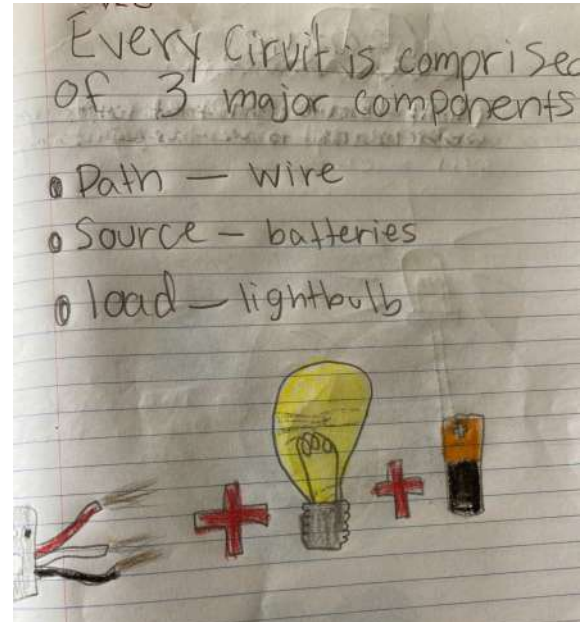 Every Cirvit is comprised
of 3 major components
• Path — wire
• Source — batteries
• load — lightbulb
+